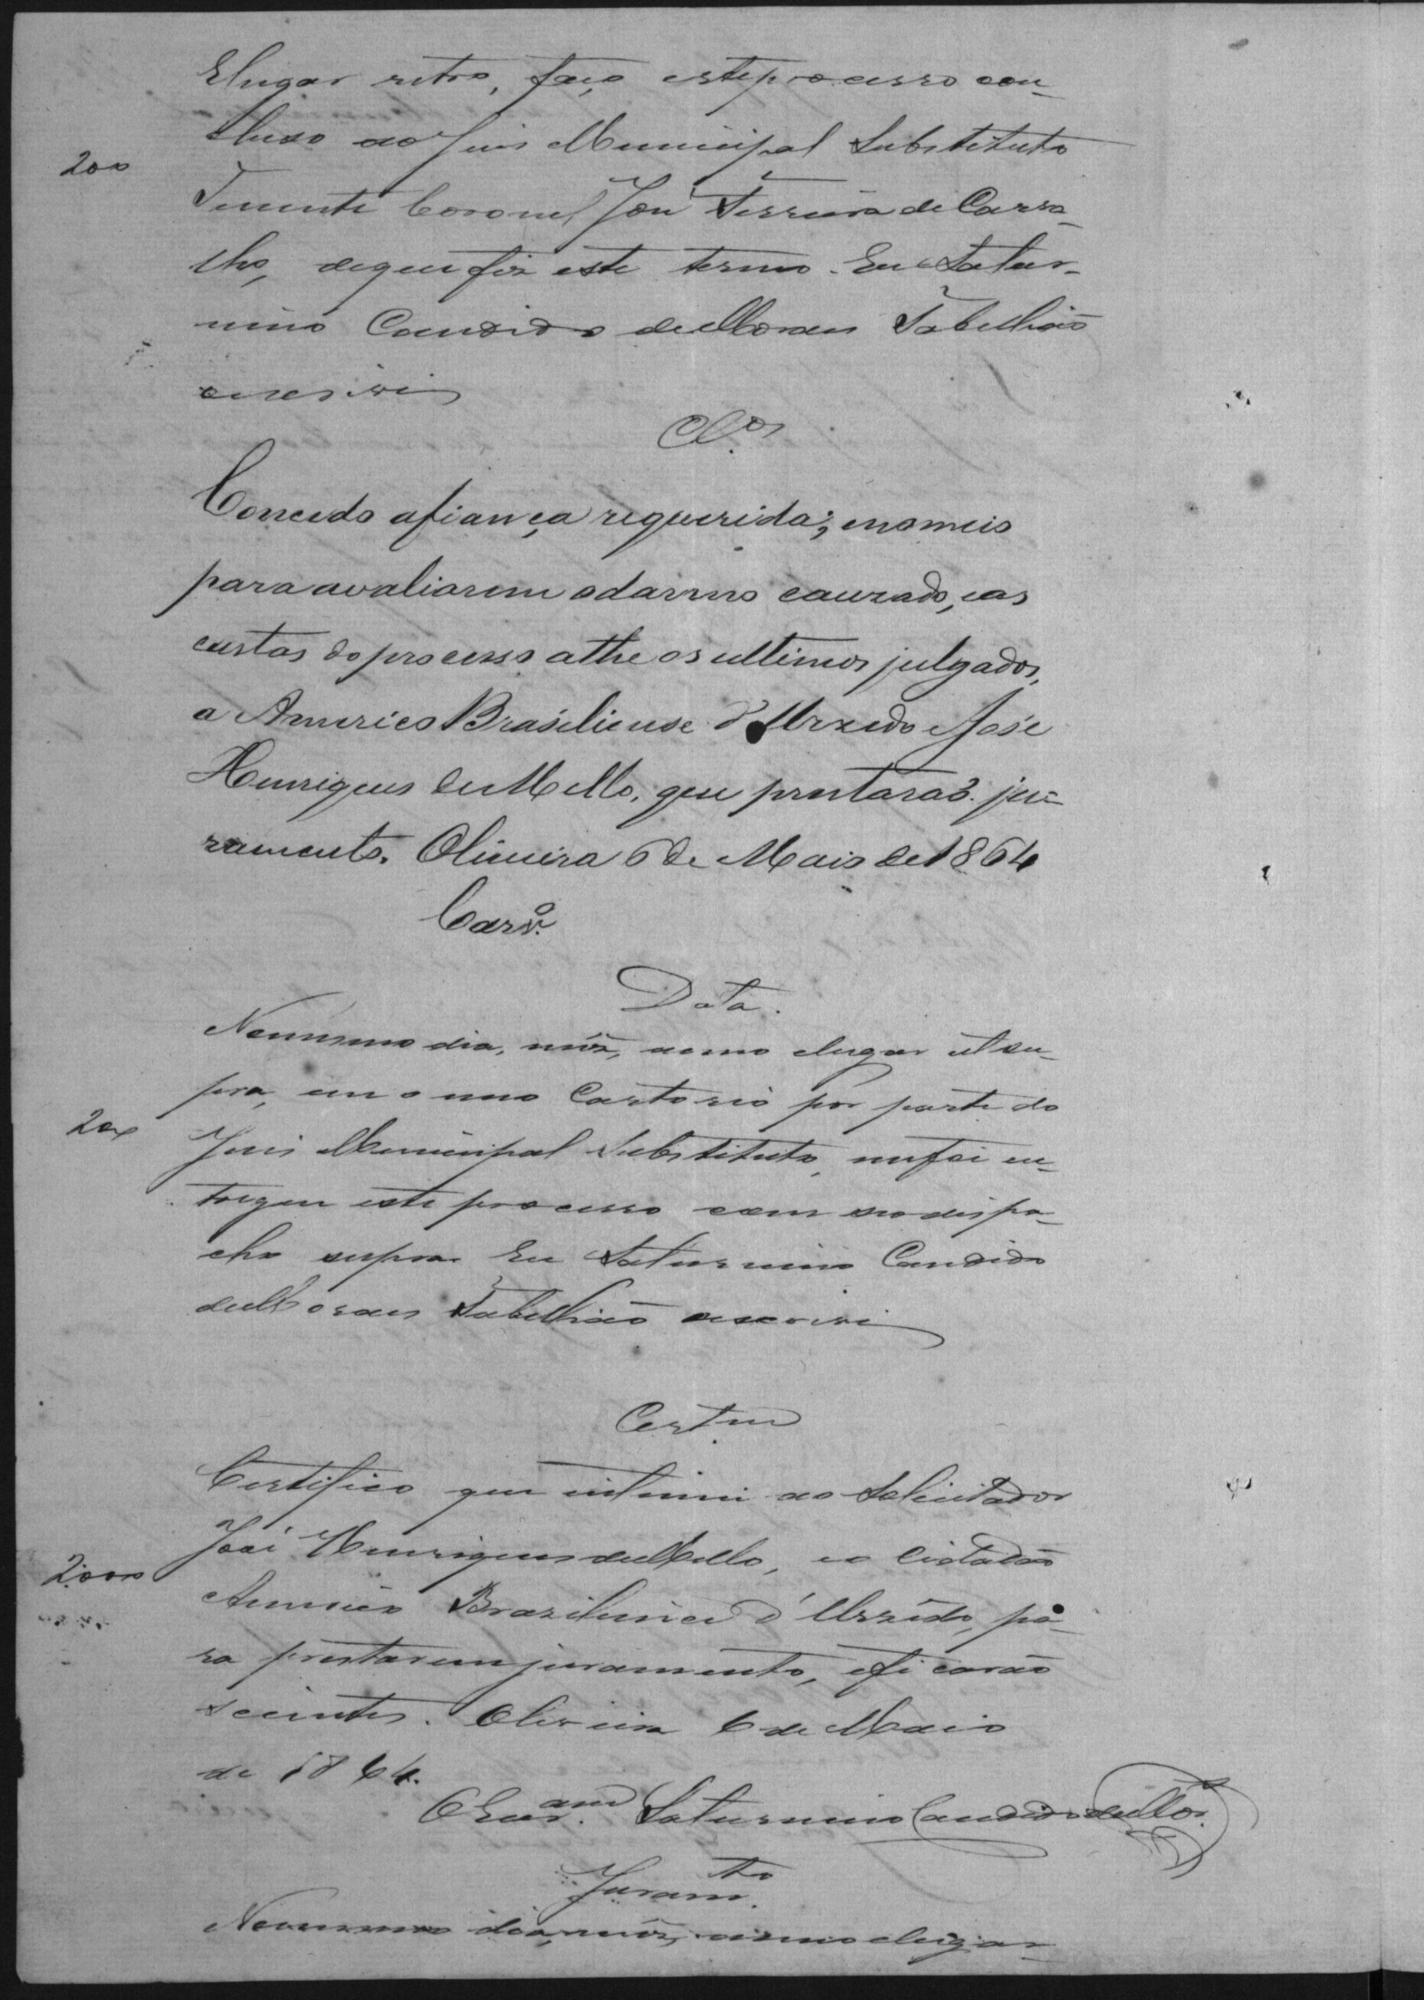 Elugar retro, faço esteprocesso con-
cluso ao Juis Municipal Substituto
200
Tenente Coronel José Ferreira de Carva-
lho, dequefiz este termo. Eu Satur-
nino Candido deMoraes Tabellião
oescrivi
Cl.os
Concedo afiança requerida; enomeio
para avaliarem odamno cauzado, eas
custas do processo athe os ultimos julgados,
a Americo Brasiliense d'Azevedo eJosé
Henriques de Mello, que prestarão ju-
ramento. Oliveira 6 de Maio de 1864
Carv.o
Data.
Nomesmo dia, mês, anno elugar utsu-
pra, em o meo Cartorio por parte do
200
Juis Municipal Substituto, mefoi en-
tregue este processo com seodespa-
cho supra Eu Saturnino Candido
deMoraes Tabellião oescrivi
Certm
Certifico que intimei ao Solicitador
José Henriques deMello, eo Cidadão
2000
Americo Braziliense d'Azevêdo, pa-
ra prestarem juramento, eficarão
scientes. Oliveira 6 de Maio
de 1864.
OEscr.am Saturnino Candido deMor.
Juram.to
Nomesmo dia, mês, anno elugar